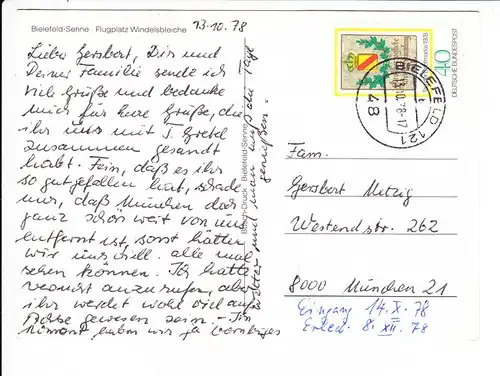 Bielefeld-Senne Flugplatz Windelsbleiche
13.10.78
Lieber Gersbert, Dir und
Deiner Familie sende ich
viele Grüße und bedanke
mich für Eure Grüße, die
ihr uns mit T. Gretel
zusammen gesandt
habt. Fein, daß es ihr
so gut gefallen hat, schade
nur, daß München doch
ganz schön weit von uns
entfernt ist, sonst hätten
wir uns vill. alle mal
sehen können. Ich hatte
versucht anzurufen, aber
ihr werdet wohl viel auf
Achse gewesen sein. – Im
Moment haben wir ja
Wetter und man muß die Tage
genießen.
Bosch-Druck Bielefeld-Senne
40
DEUTSCHE BUNDESPOST
BIELEFELD 121
48
13.10.78-17
Fam.
Gersbert Metzig
Westendstr. 262
8000 München 21
Eingang 14. X. 78
Erled. 8. XII. 78